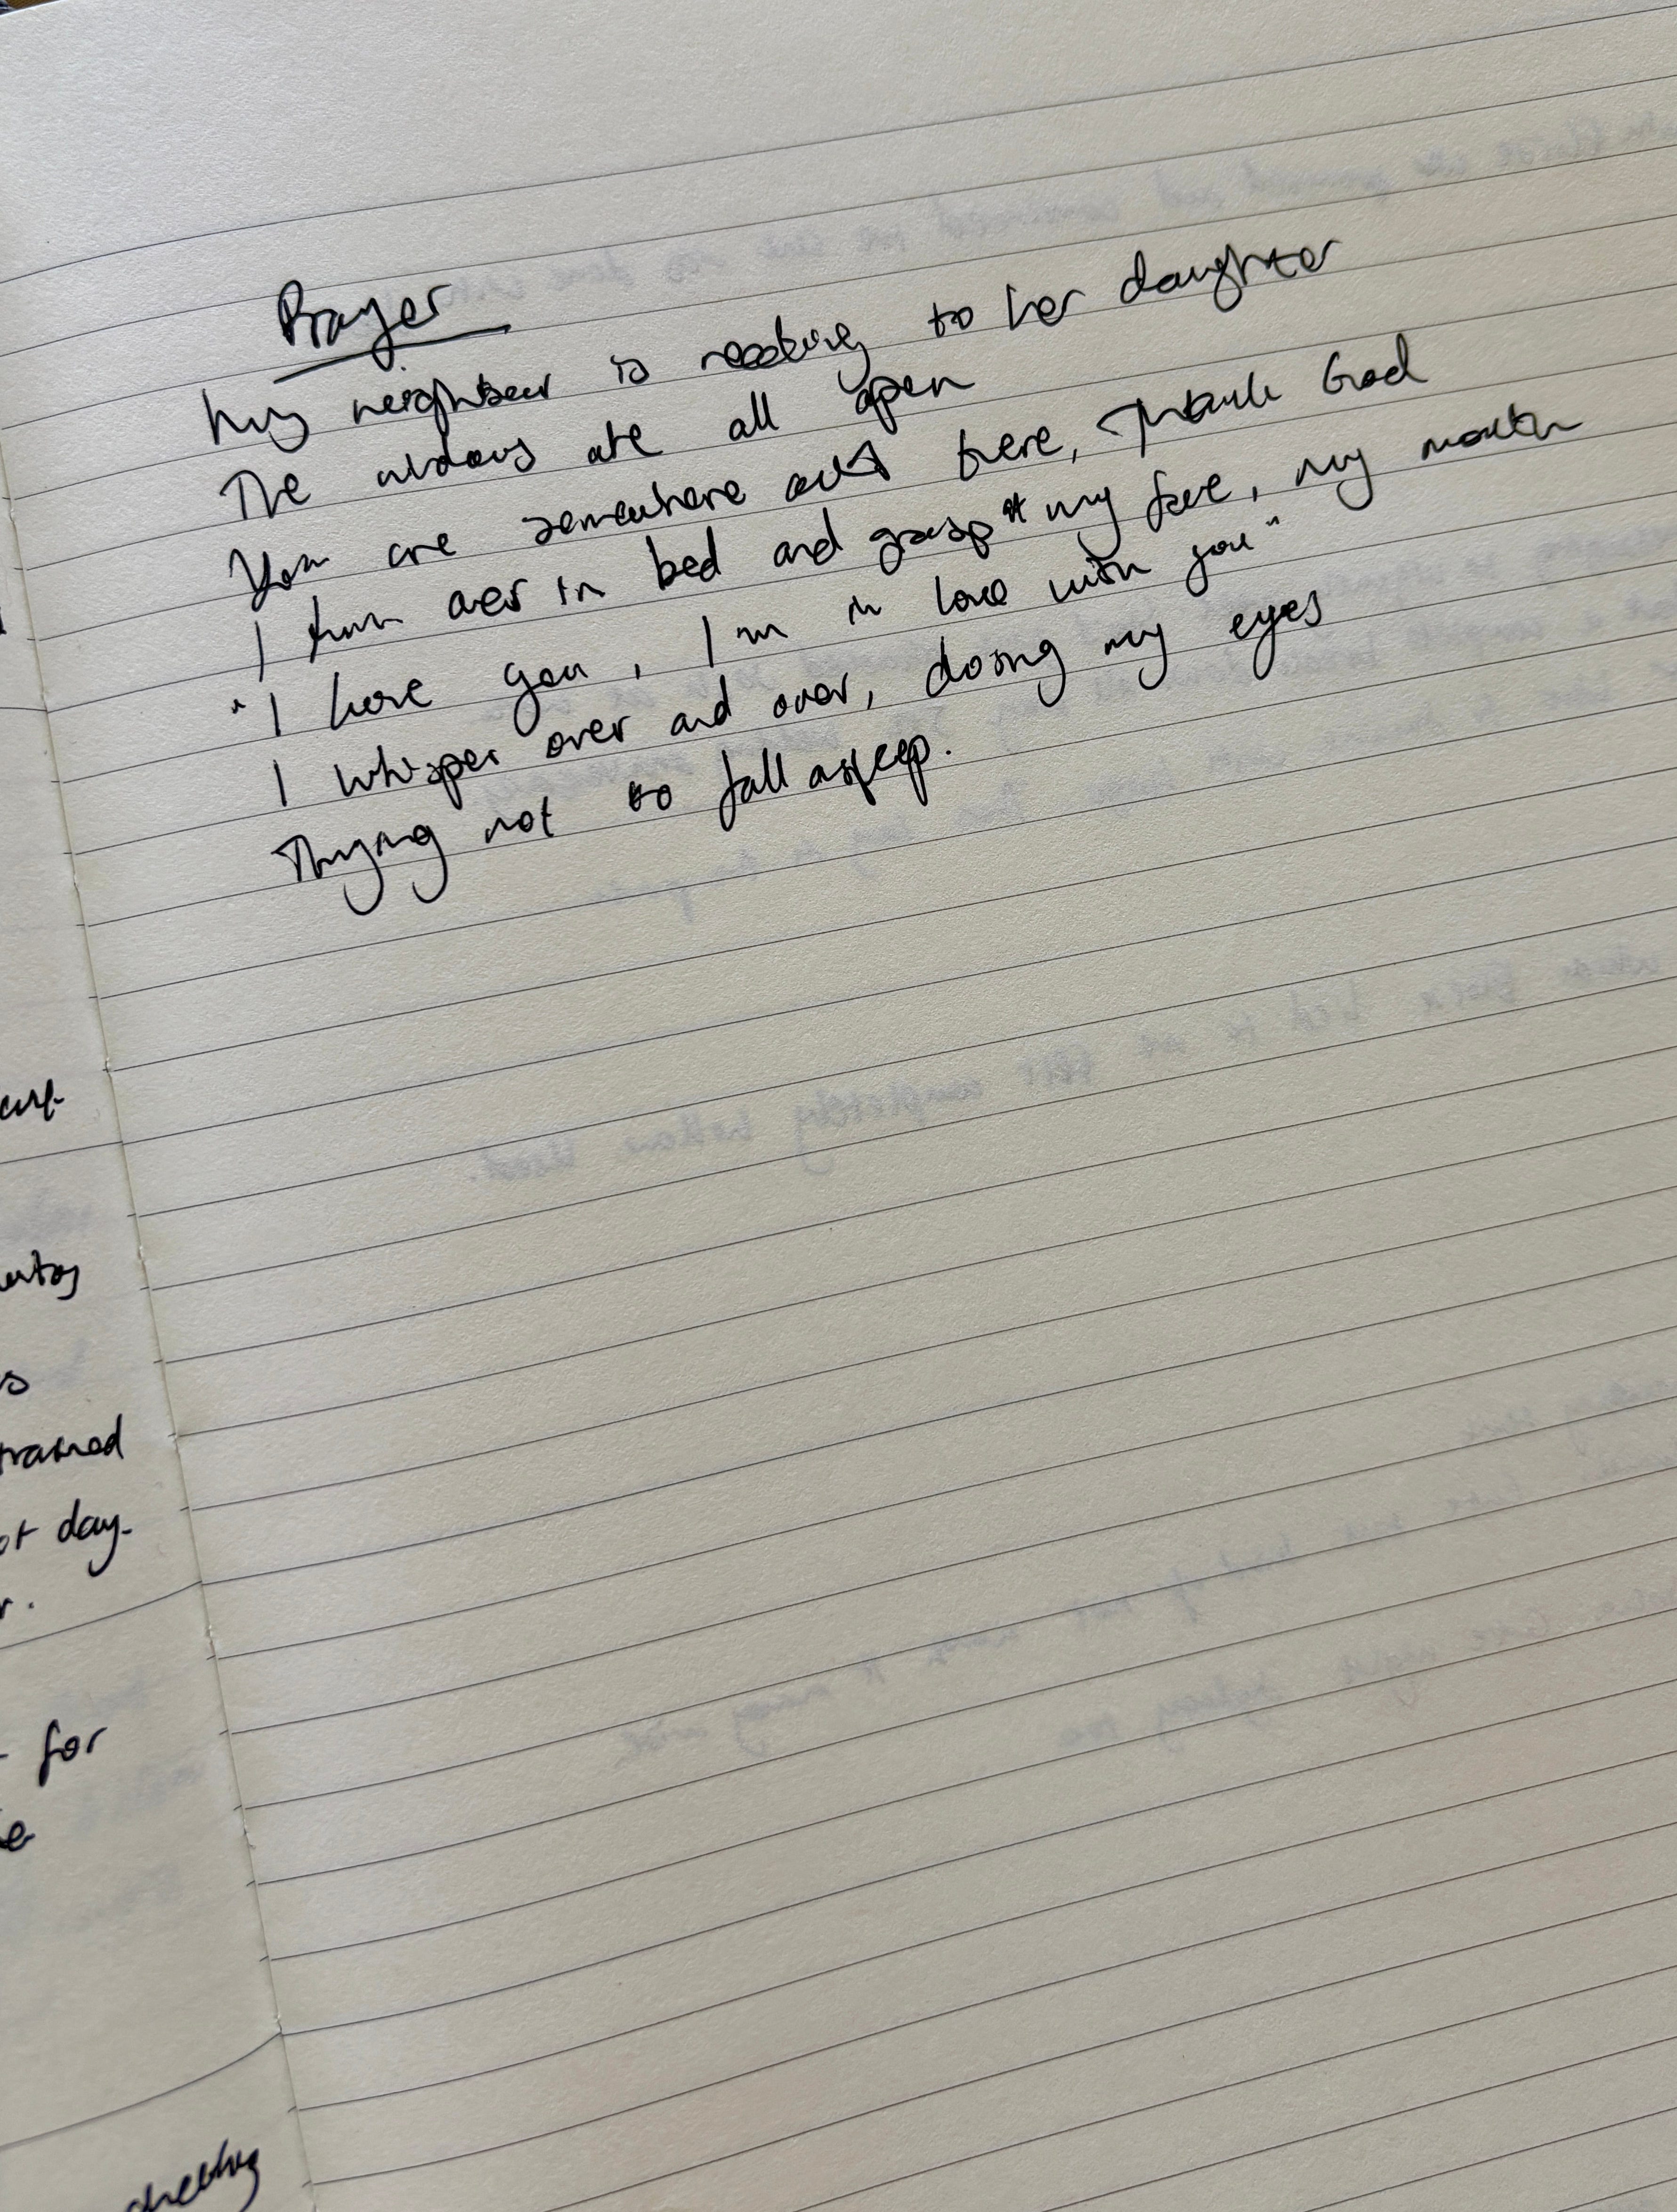 Prayer
My neighbour is reading to her daughter
The windows are all open
You are somewhere out there, Thank God
I turn over in bed and grasp at my face, my mouth
"I love you, I'm in love with you"
I whisper over and over, closing my eyes
Trying not to fall asleep.
trained
day.
for